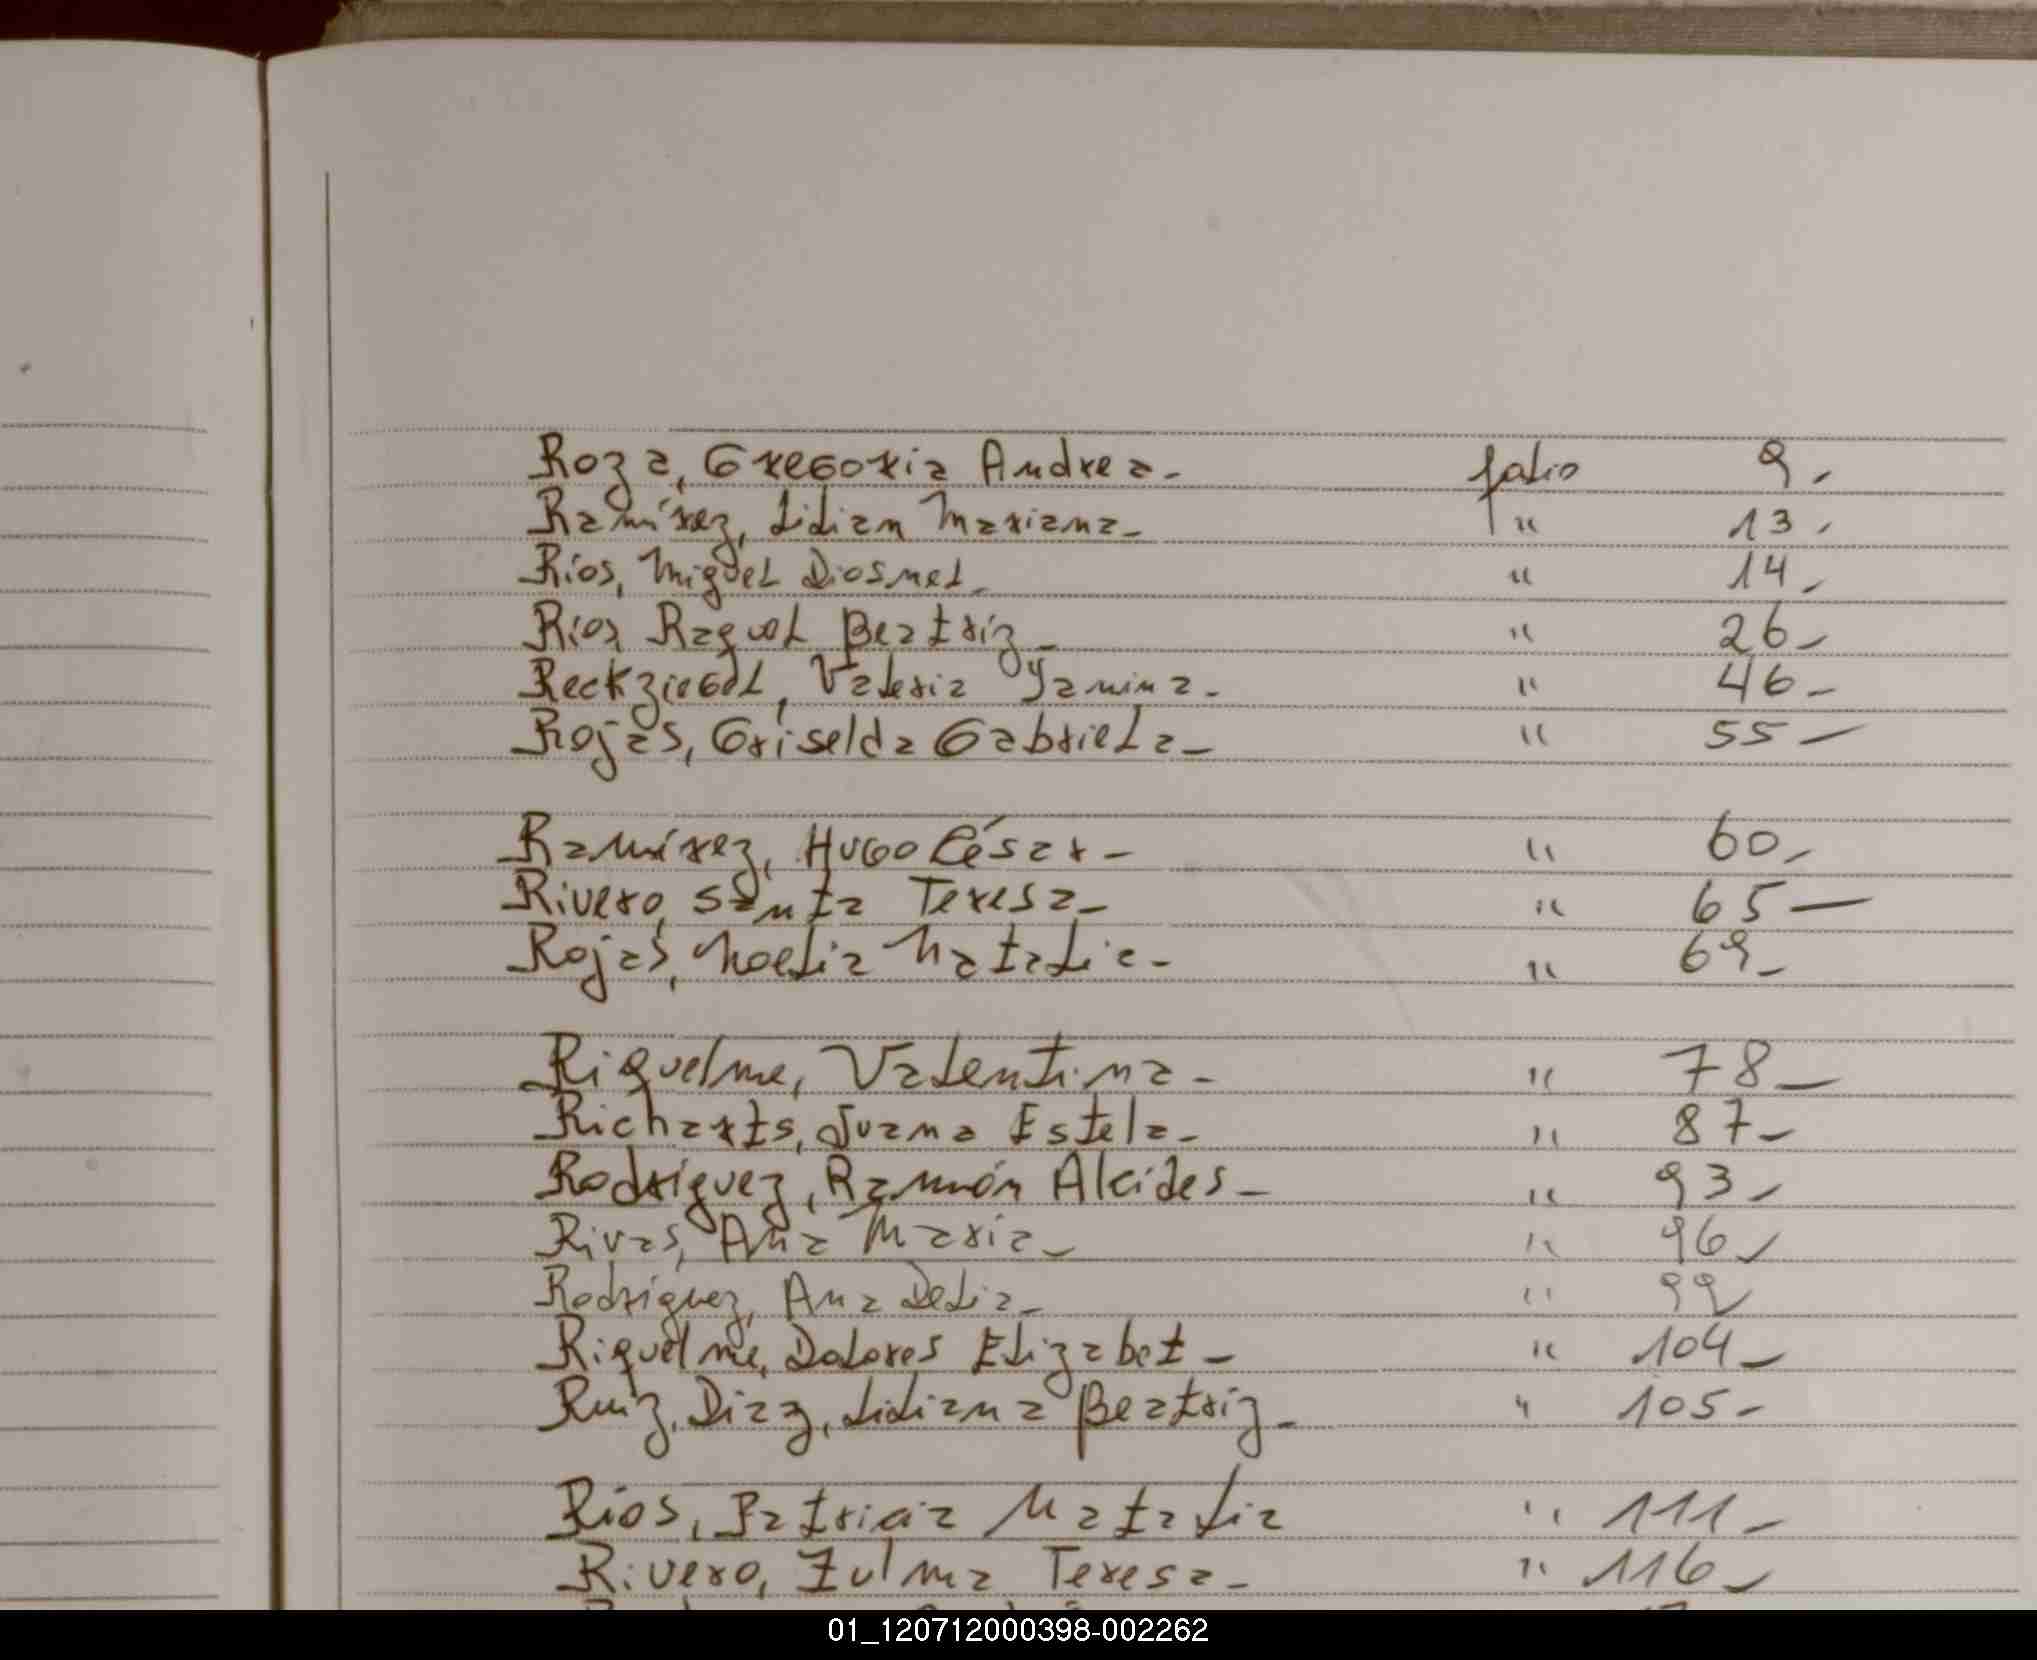 Roza, Gregoria Andrea- folio 9-
Ramírez, Lilian Mariana- " 13-
Ríos, Miguel Diosnel- " 14-
Ríos, Raquel Beatriz- " 26-
Reckziegel, Valeria Yanina- " 46-
Rojas, Griselda Gabriela- " 55-
Ramírez, Hugo César- " 60-
Rivero, Santa Teresa- " 65-
Rojas, Noelia Natalia- " 69-
Riquelme, Valentina- " 78-
Richarts, Juana Estela- " 87-
Rodríguez, Ramón Alcides- " 93-
Rivas, Ana María- " 96-
Rodríguez, Ana Delia- " 99
Riquelme, Dolores Elizabet- " 104-
Ruiz, Diaz, Lidiana Beatriz- " 105-
Ríos, Patricia Natalia " 111-
Rivero, Zulma Teresa- " 116-
01_120712000398-002262